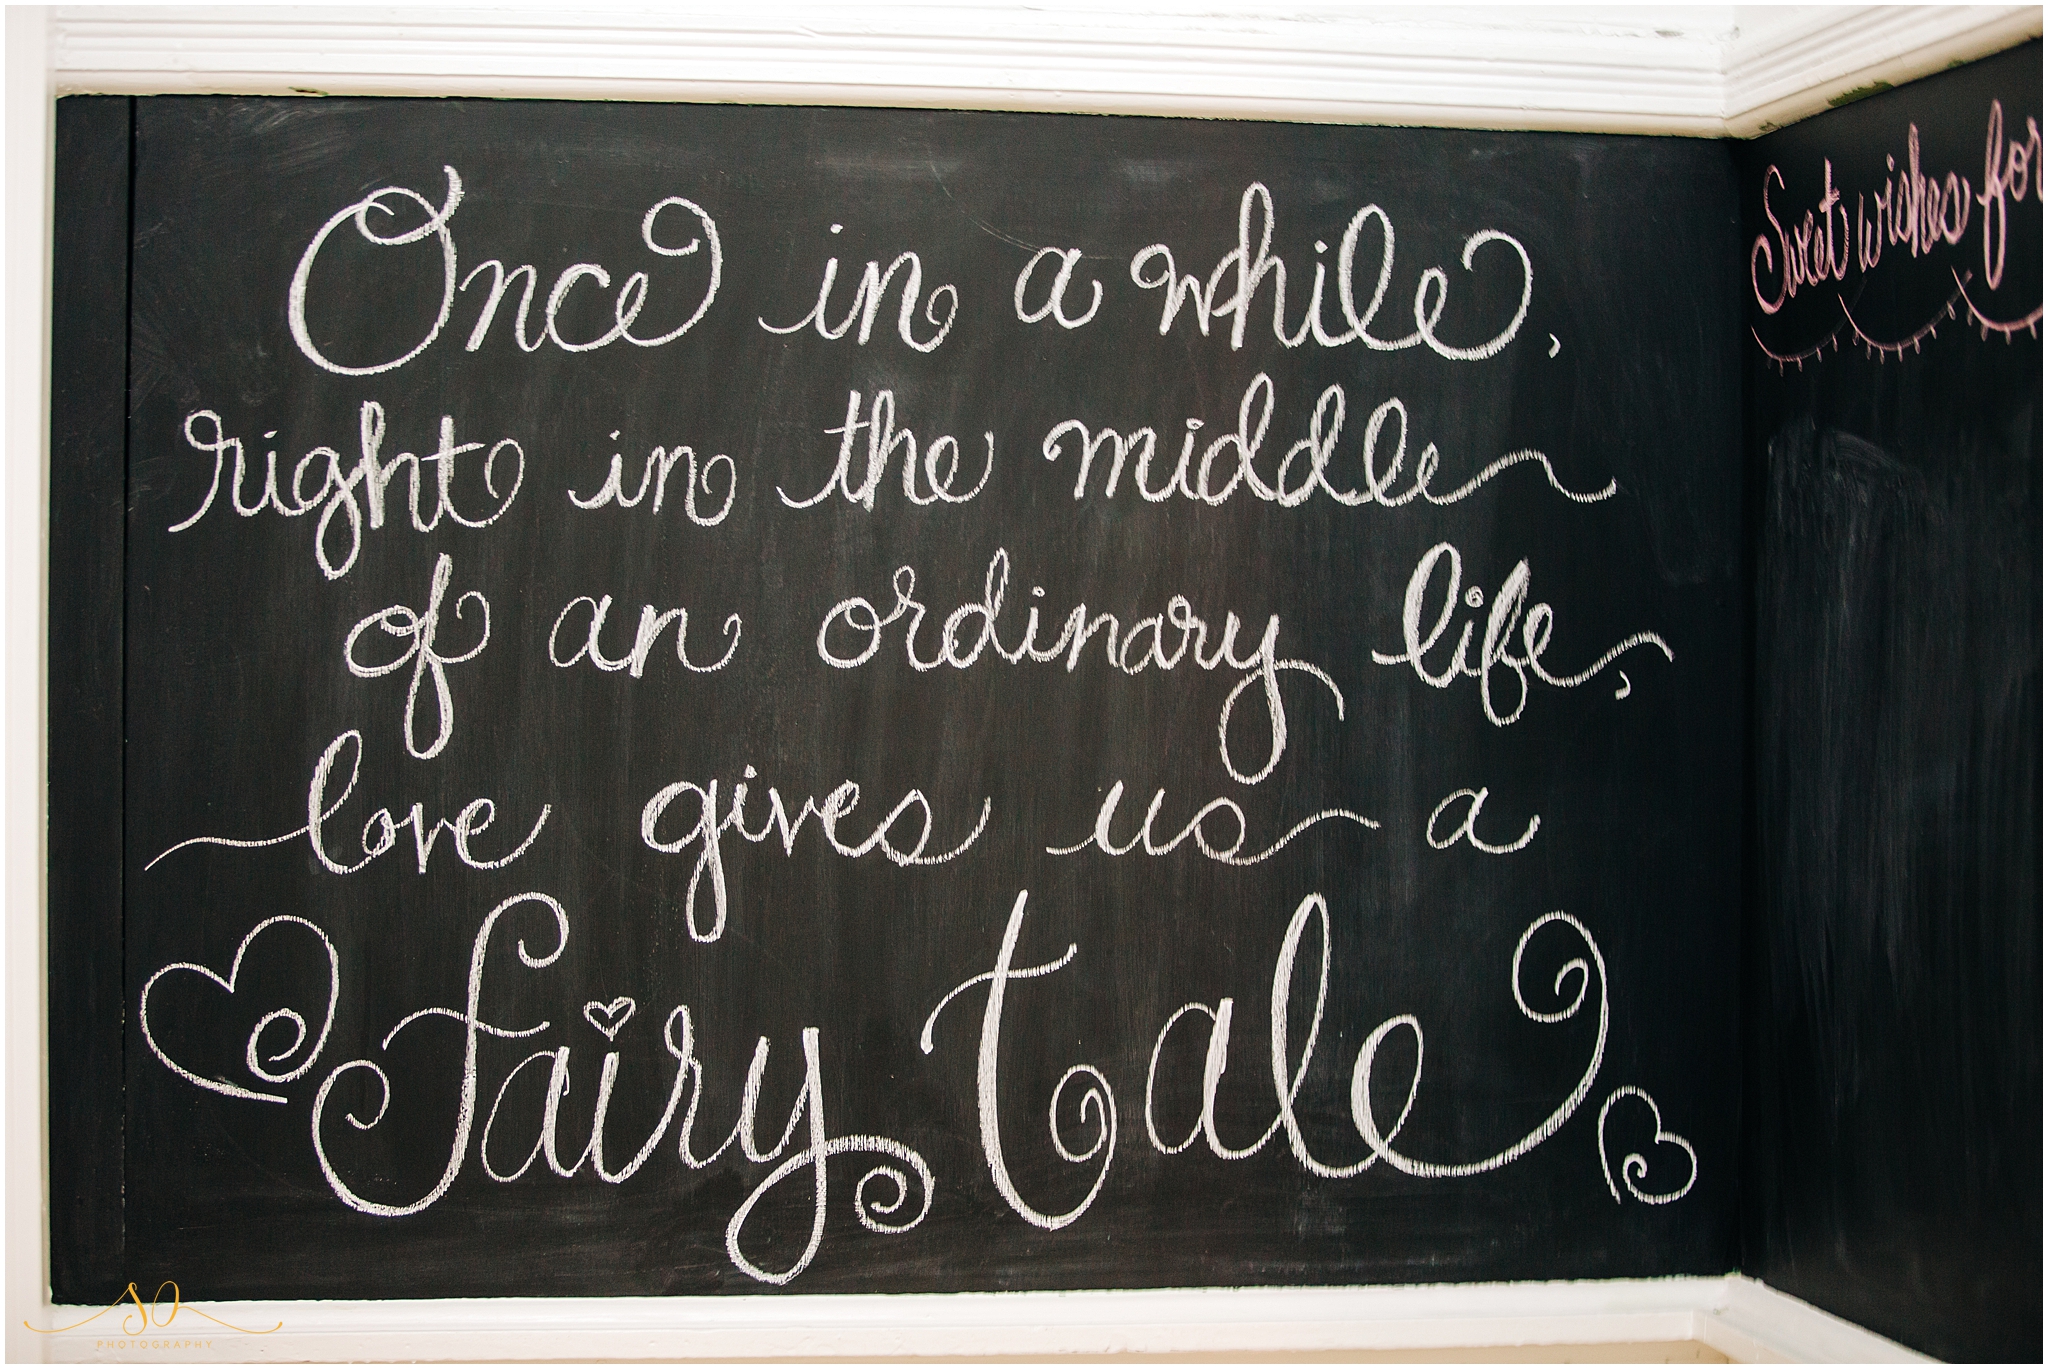 Once in a while,
right in the middle
of an ordinary life,
love gives us a
fairy tale
Sweet wishes for
SO
PHOTOGRAPHY